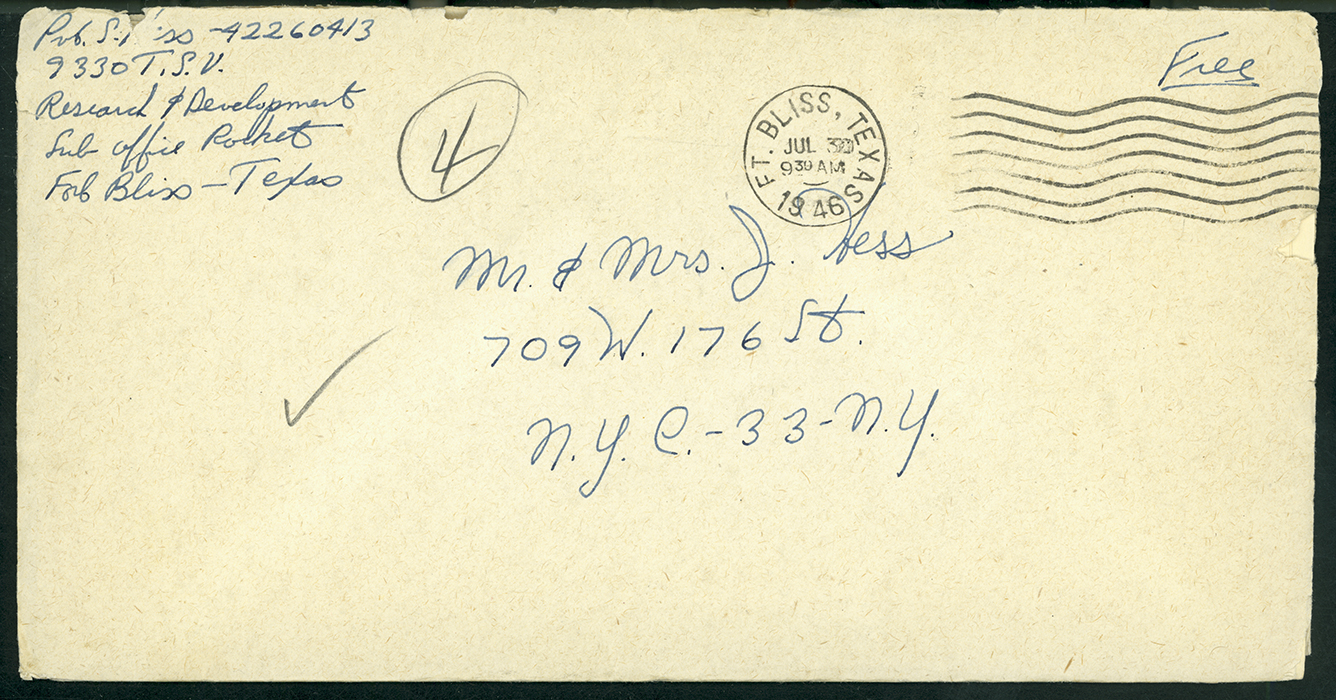 Pvt. S. Hess -42260413
9330 T.S.U.
Research & Development
Sub office Rocket
Fort Bliss - Texas
4
Free
FT. BLISS, TEXAS
JUL 30
9 30 AM
1946
Mr. & Mrs. J. Hess
709 W. 176 St.
N.Y.C. - 33 - N.Y.